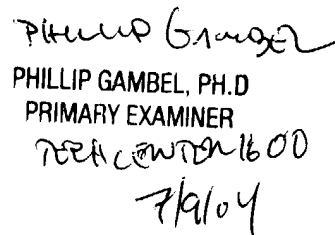 PHILLIP GAMBEL
PHILLIP GAMBEL, PH.D
PRIMARY EXAMINER
TECH CENTER 1600
7/9/04